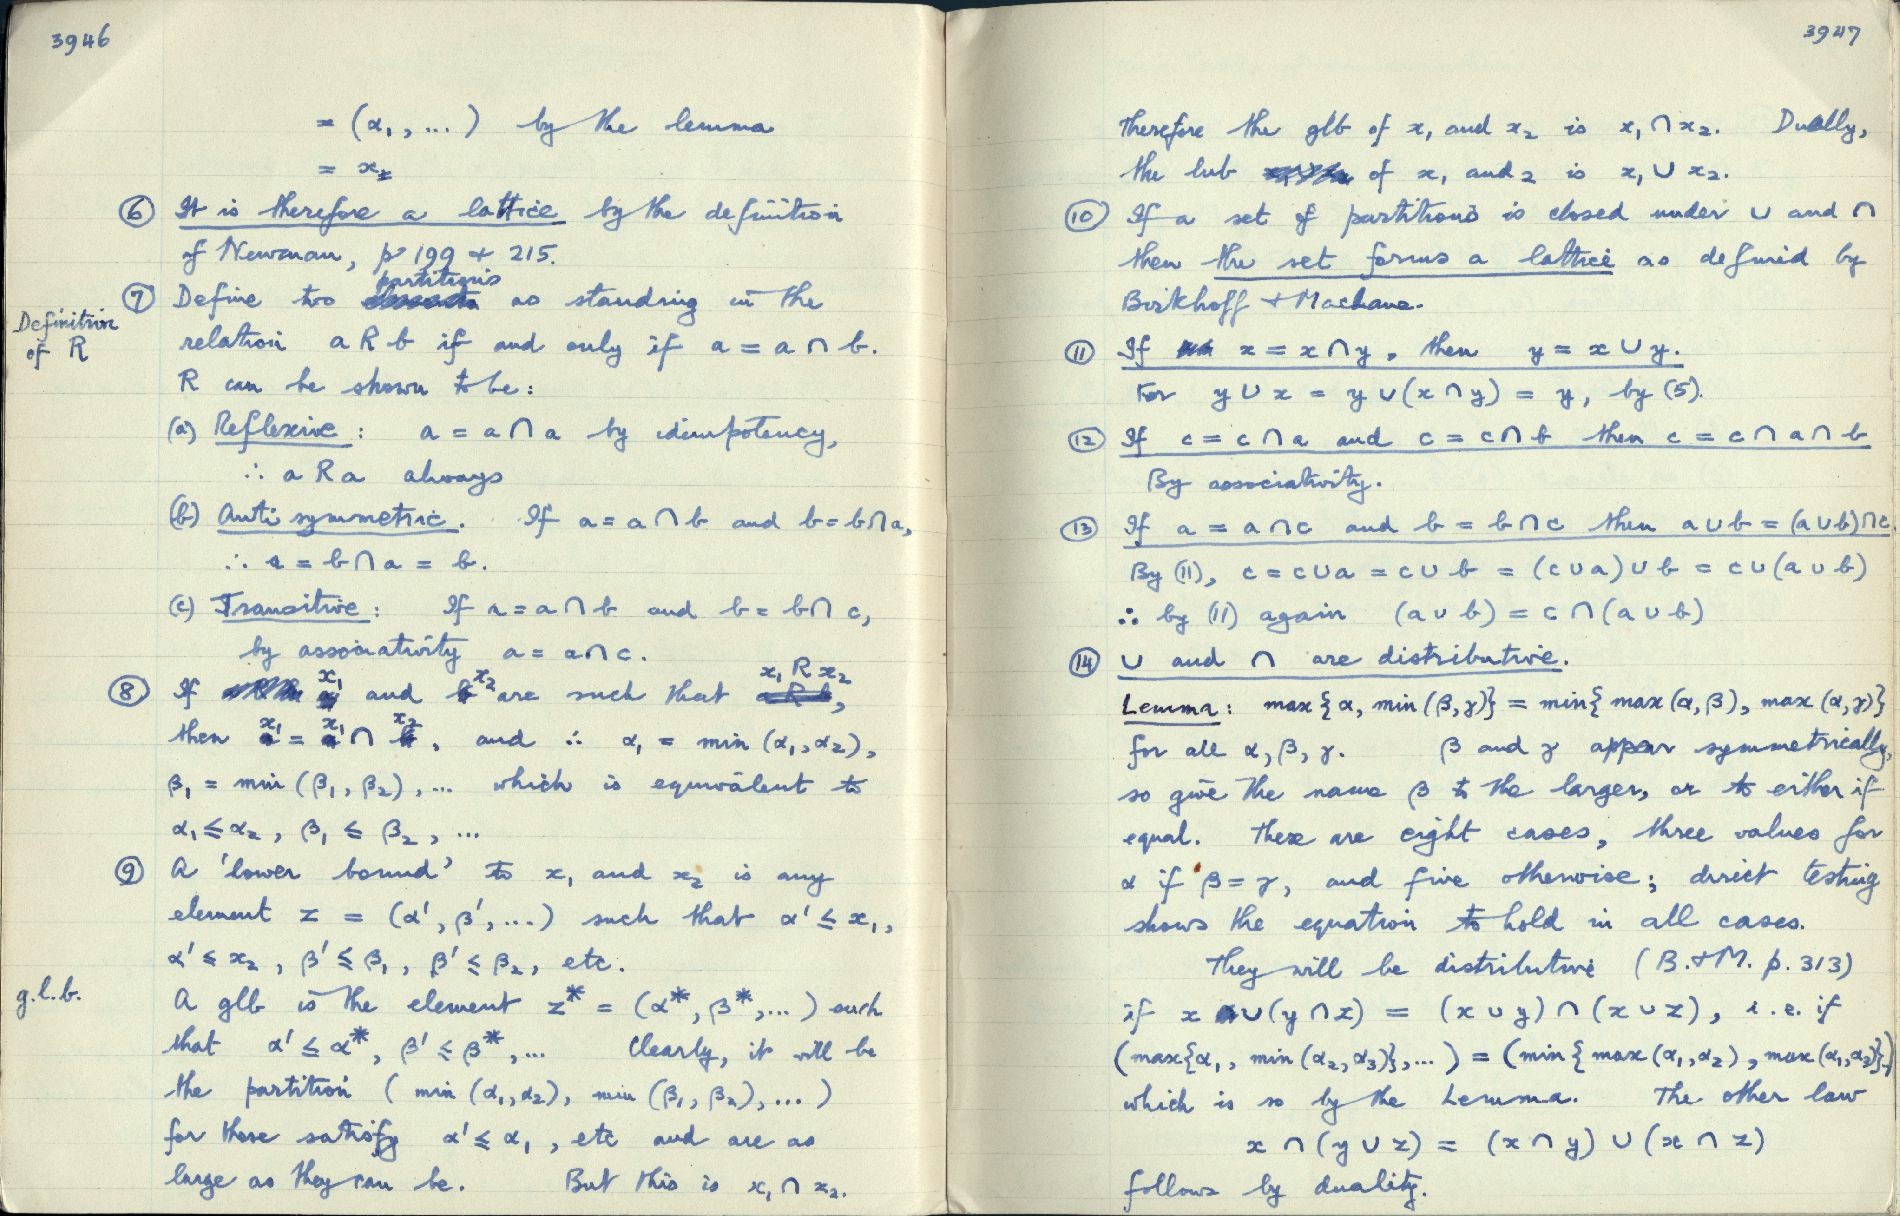 3946
= (α₁, ...) by the lemma
= x₁
⑥ It is therefore a lattice by the definition
of Newman, p 199 + 215.
partitions
⑦ Define two as standing in the
Definition
of R
relation a R b if and only if a = a ∩ b.
R can be shown to be:
(a) Reflexive: a = a ∩ a by idempotency,
∴ a R a always
(b) Anti symmetric. If a = a ∩ b and b = b ∩ a,
∴ a = b ∩ a = b.
(c) Transitive: If a = a ∩ b and b = b ∩ c,
by associativity a = a ∩ c.
⑧ If x₁ and x₂ are such that x₁ R x₂,
then x₁ = x₁ ∩ x₂, and ∴ α₁ = min (α₁, α₂),
β₁ = min (β₁, β₂), ... which is equivalent to
α₁ ≤ α₂, β₁ ≤ β₂, ...
⑨ A 'lower bound' to x₁ and x₂ is any
element z = (α', β', ...) such that α' ≤ x₁,
α' ≤ x₂, β' ≤ β₁, β' ≤ β₂, etc.
g.l.b.
A glb is the element z* = (α*, β*, ...) such
that α' ≤ α*, β' ≤ β*, ... Clearly, it will be
the partition (min (α₁, α₂), min (β₁, β₂), ...)
for these satisfy α' ≤ α₁, etc and are as
large as they can be. But this is x₁ ∩ x₂.
3947
therefore the glb of x₁ and x₂ is x₁ ∩ x₂. Dually,
the lub of x₁ and 2 is x₁ ∪ x₂.
⑩ If a set of partitions is closed under ∪ and ∩
then the set forms a lattice as defined by
Birkhoff + Maclane.
⑪ If x = x ∩ y, then y = x ∪ y.
For y ∪ x = y ∪ (x ∩ y) = y, by (5).
⑫ If c = c ∩ a and c = c ∩ b then c = c ∩ a ∩ b
By associativity.
⑬ If a = a ∩ c and b = b ∩ c then a ∪ b = (a ∪ b) ∩ c.
By (11), c = c ∪ a = c ∪ b = (c ∪ a) ∪ b = c ∪ (a ∪ b)
∴ by (11) again (a ∪ b) = c ∩ (a ∪ b)
⑭ ∪ and ∩ are distributive.
Lemma: max{α, min (β, γ)} = min{max (α, β), max (α, γ)}
for all α, β, γ. β and γ appear symmetrically,
so give the name β to the larger, or to either if
equal. There are eight cases, three values for
α if β = γ, and five otherwise; direct testing
shows the equation to hold in all cases.
They will be distributive (B. + M. p. 313)
if x ∪ (y ∩ z) = (x ∪ y) ∩ (x ∪ z), i.e. if
(max{α₁, min (α₂, α₃)}, ...) = (min {max (α₁, α₂), max (α₁, α₃)}..)
which is so by the Lemma. The other law
x ∩ (y ∪ z) = (x ∩ y) ∪ (x ∩ z)
follows by duality.